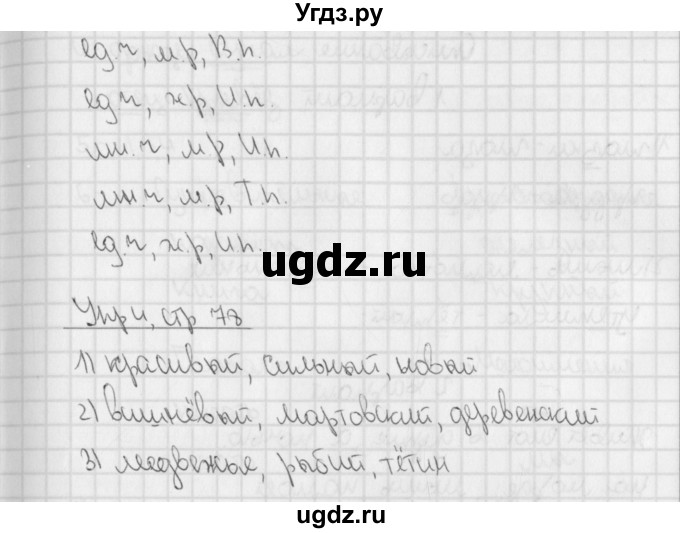 Угдз.ру
ед.ч, м.р, В.п.
ед.ч, ж.р, И.п.
мн.ч, м.р, И.п.
мн.ч, м.р, Т.п.
ед.ч, ж.р, И.п.
ugdz.ru
Упр 4, стр 78
1) красивый, сильный, новый
2) вишнёвый, мартовский, деревенский
3) медвежье, рыбий, тётин
ugdz.ru